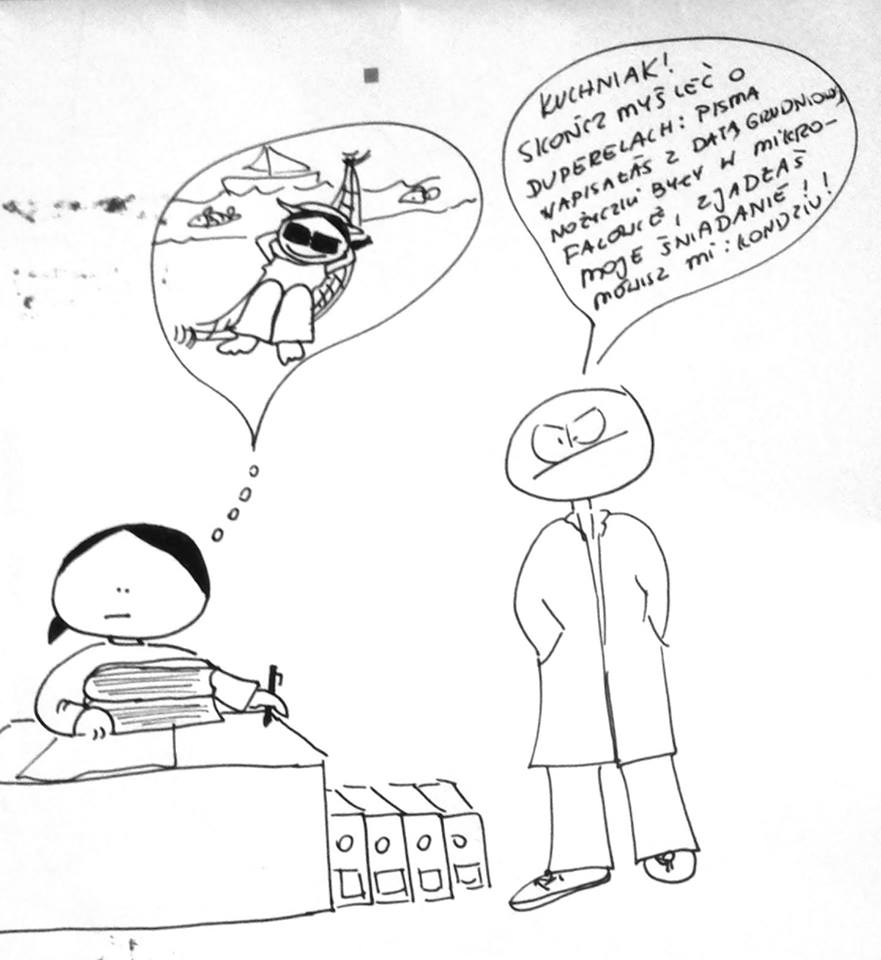 KUCHNIAK!
SKOŃCZ MYŚLEĆ O
DUPERELACH: PISMA
NAPISAŁAŚ Z DATĄ GRUDNIOWĄ
NOŻYCZKI BYŁY W MIKRO-
FALOWCE I ZJADŁAŚ
MOJE ŚNIADANIE!
MÓWISZ MI: KONDZIU!